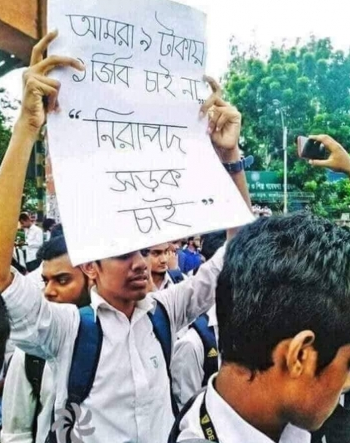 আমরা ৯ টাকায়
১ জিবি চাই না
“নিরাপদ
সড়ক
চাই”